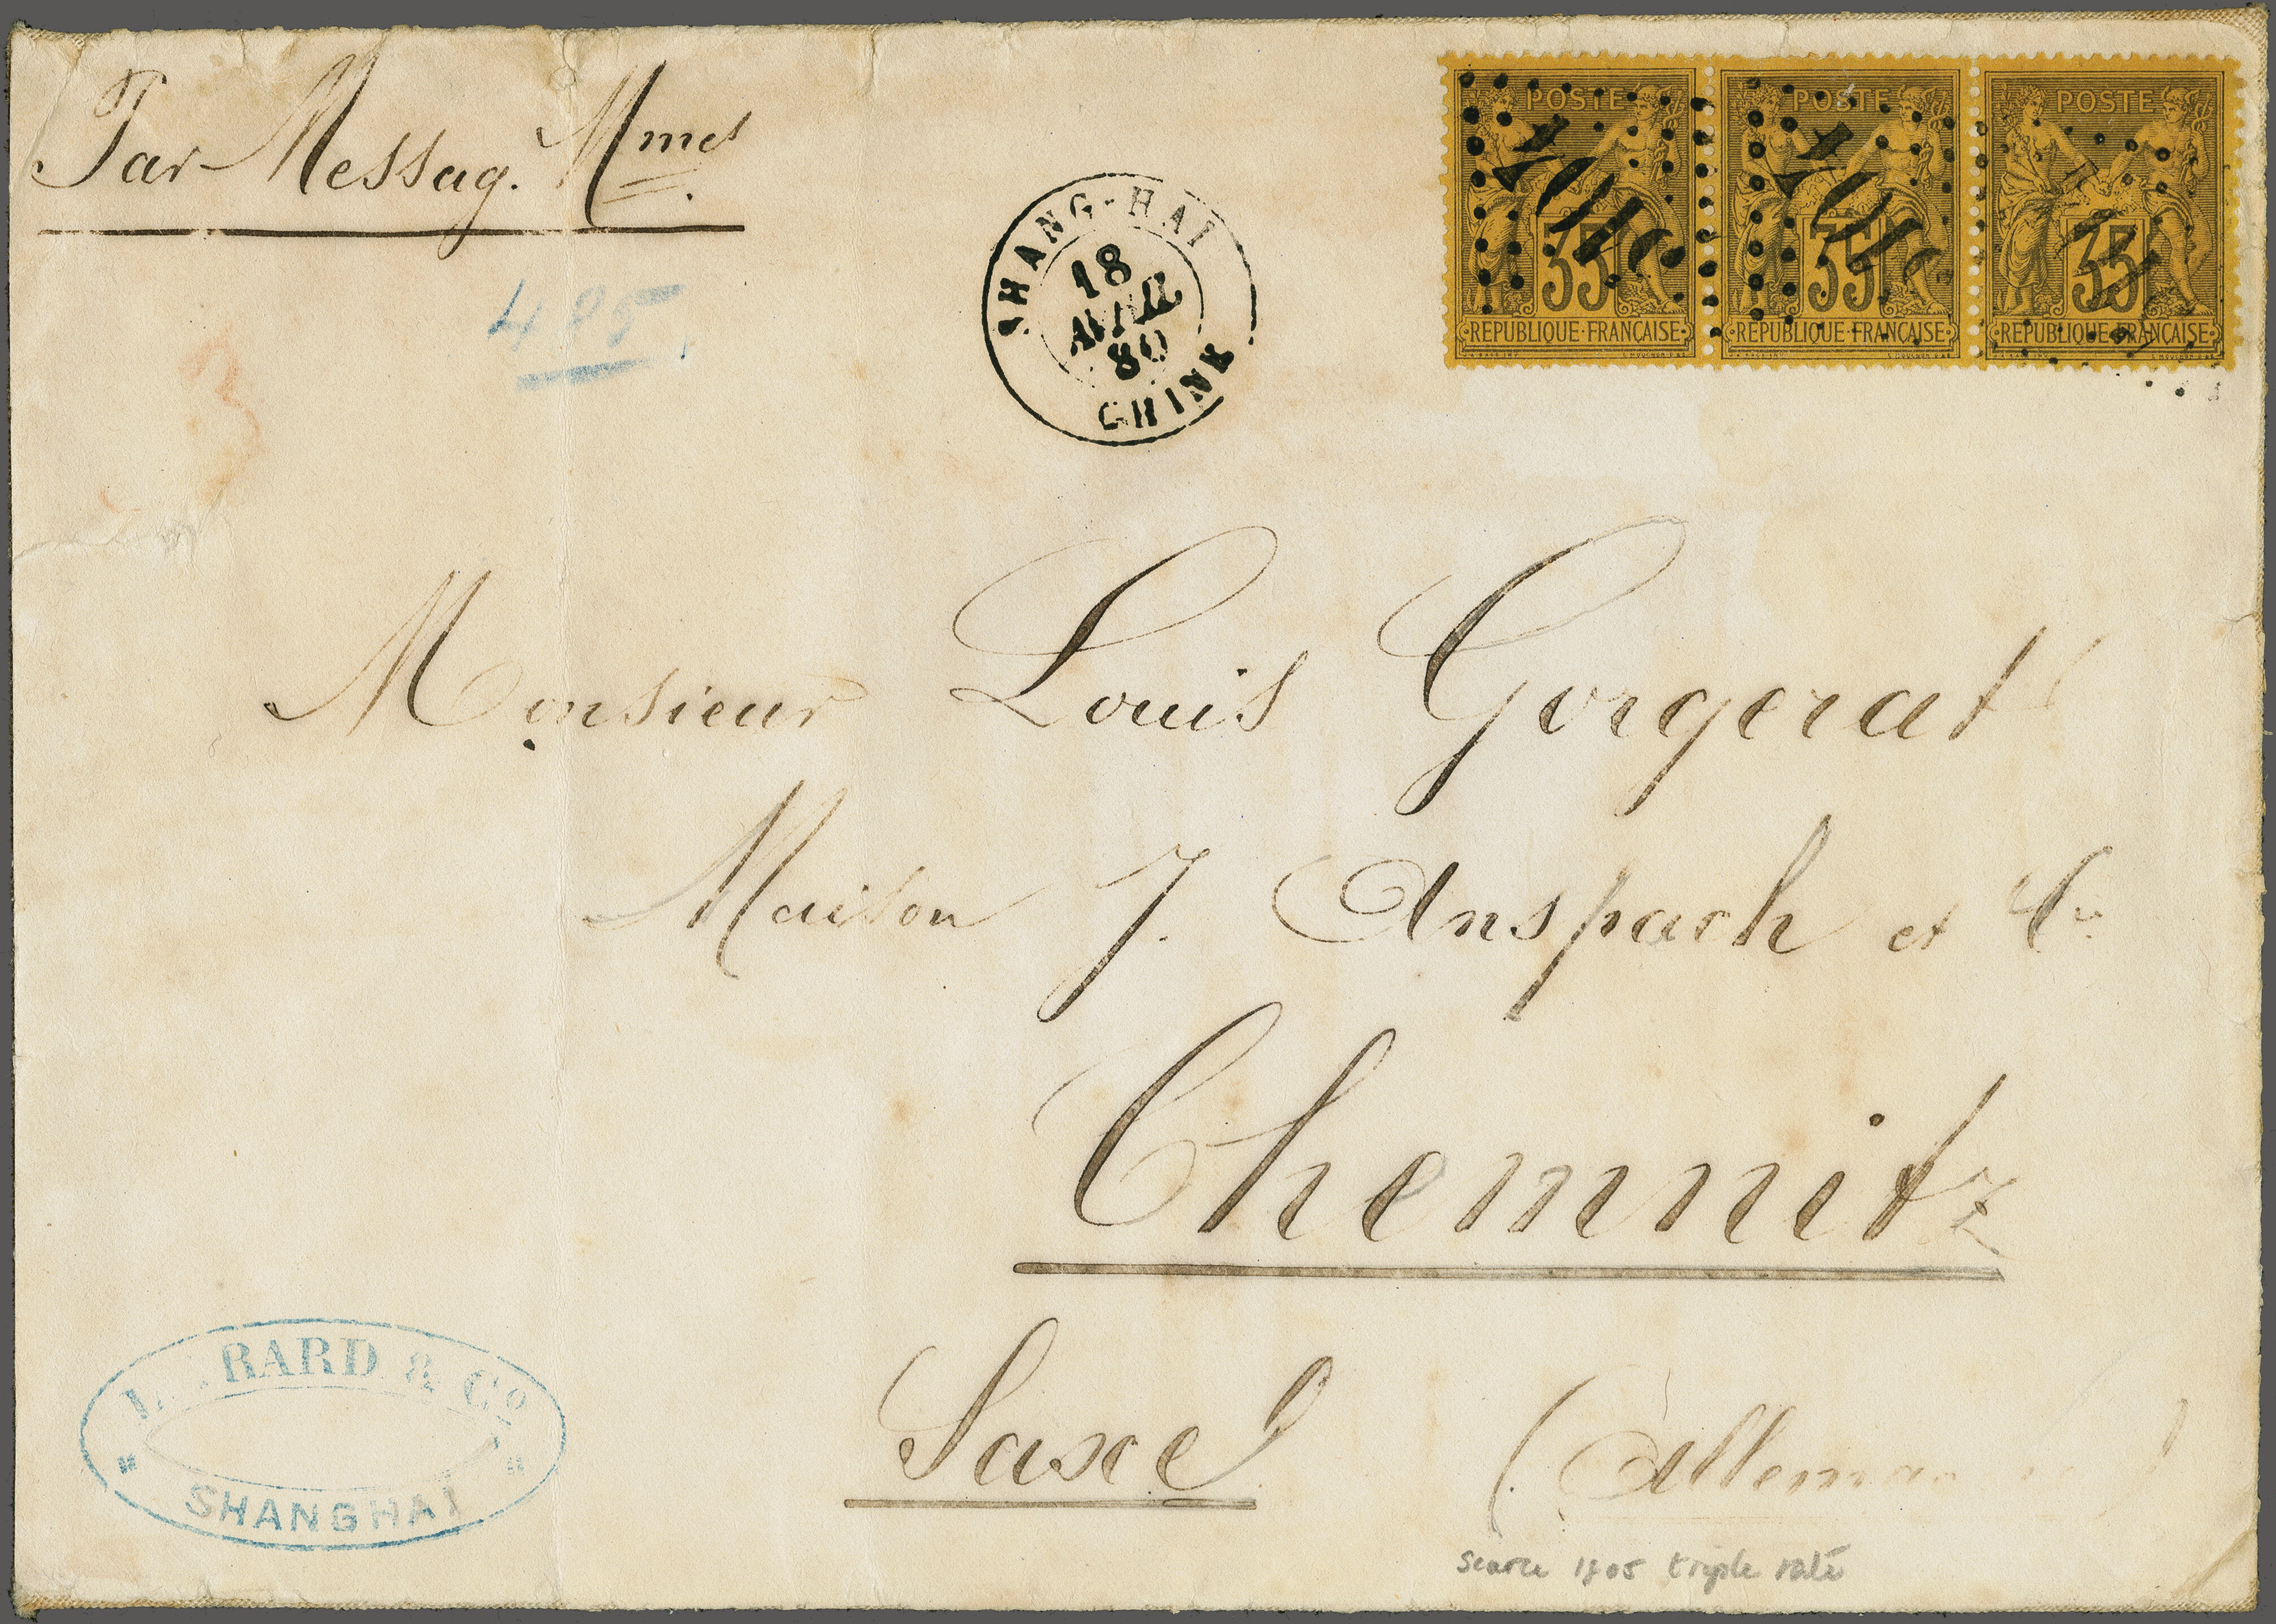 Par Messag. Mmes
485
SHANG-HAI
18
AVRIL
80
CHINE
POSTE
5104
35
REPUBLIQUE·FRANÇAISE
POSTE
5104
35
REPUBLIQUE·FRANÇAISE
POSTE
35
REPUBLIQUE·FRANÇAISE
3
Monsieur Louis Gorgerat
Maison J. Anspach et Cie
Chemnitz
Saxe
(Allema
RARD & Co
SHANGHAI
scarce 1f05 triple rate